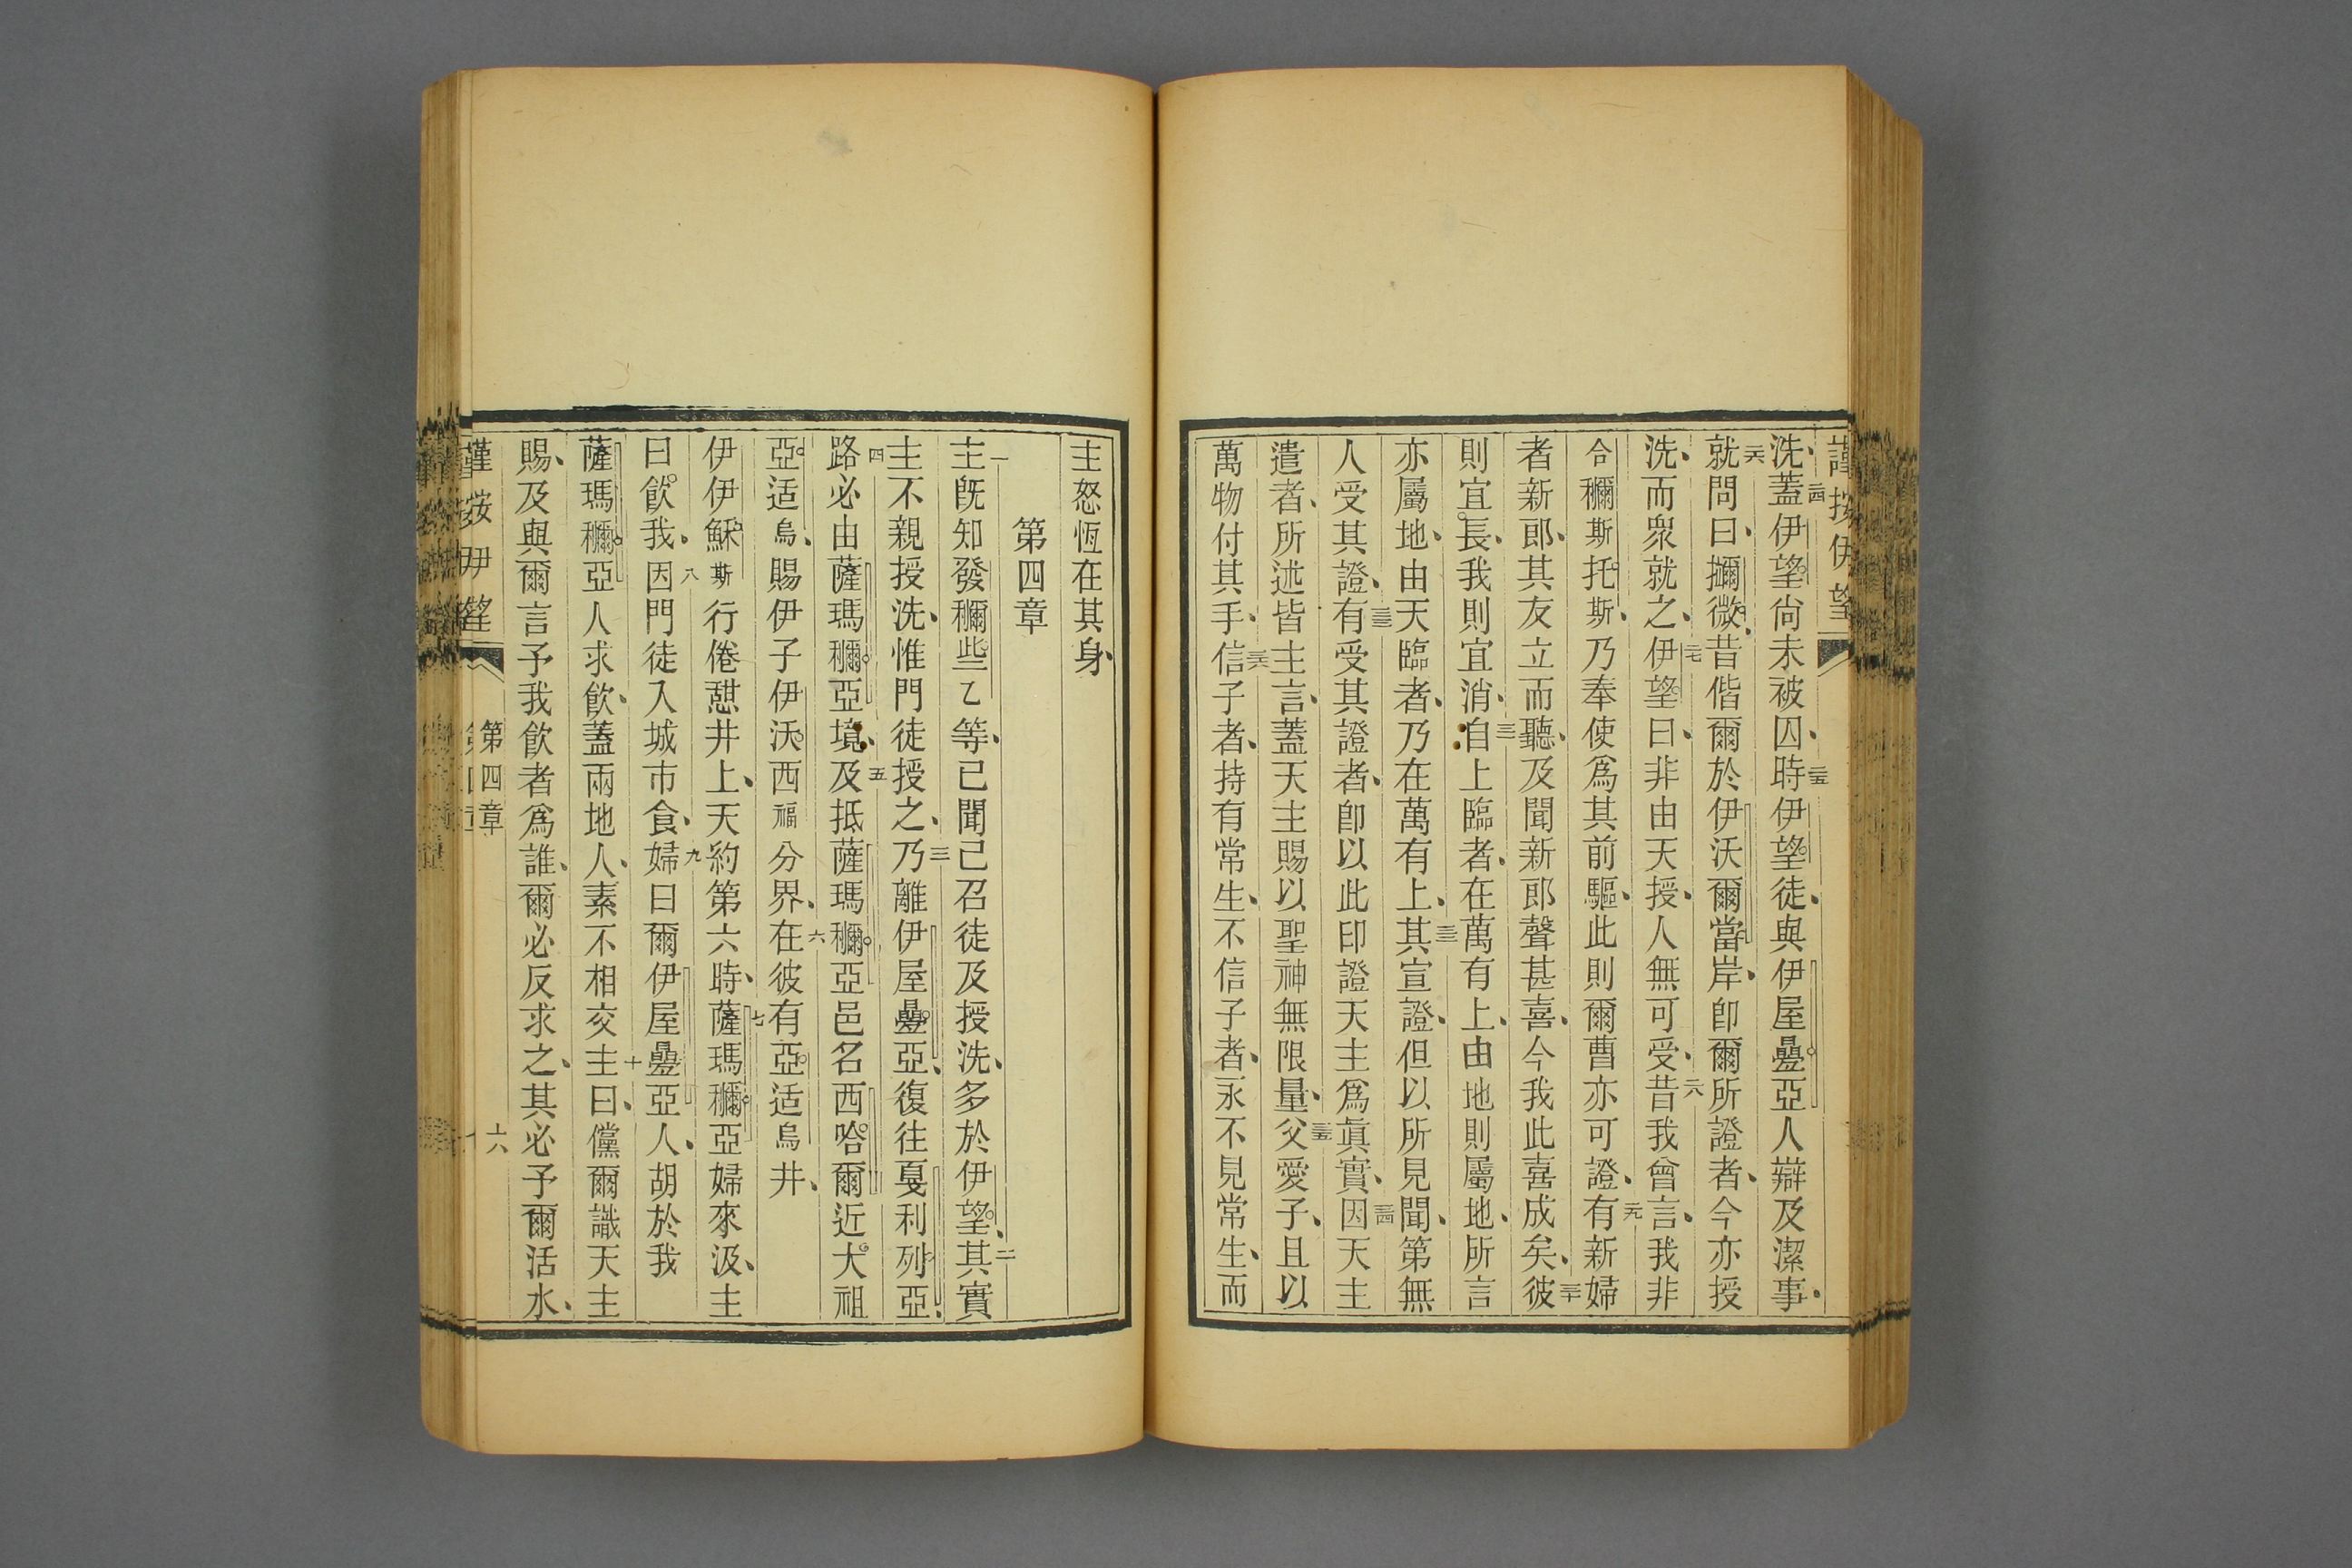 謹按伊望
洗、蓋伊望尙未被囚、時伊望徒、與伊屋疊亞人辯及潔事、
就問曰、㺔微、昔偕爾於伊沃爾當岸、卽爾所證者、今亦授
洗、而衆就之、伊望曰、非由天授、人無可受、昔我曾言、我非
合穪斯托斯、乃奉使爲其前驅、此則爾曹亦可證、有新婦
者新郎、其友立而聽、及聞新郎聲甚喜、今我此喜成矣、彼
則宜長、我則宜消、自上臨者、在萬有上、由地則屬地、所言
亦屬地、由天臨者、乃在萬有上、其宣證、但以所見聞、第無
人受其證、有受其證者、卽以此印證天主爲眞實、因天主
遣者、所述皆主言、蓋天主賜以聖神無限量、父愛子、且以
萬物付其手、信子者、持有常生、不信子者、永不見常生、而
主怒恆在其身、
第四章
主旣知發穪些乙等、已聞己召徒及授洗、多於伊望、其實
主不親授洗、惟門徒授之、乃離伊屋疊亞、復往戛利列亞、
路必由薩瑪穪亞境、及抵薩瑪穪亞邑名西哈爾近大祖
亞适烏、賜伊子伊沃西福分界、在彼有亞适烏井、
伊伊穌斯行倦憇井上、天約第六時、薩瑪穪亞婦來汲、主
曰飮我、因門徒入城市食、婦曰爾伊屋疊亞人、胡於我
薩瑪穪亞人求飮、蓋兩地人、素不相交、主曰、儻爾識天主
賜、及與爾言予我飮者爲誰、爾必反求之、其必予爾活水、
謹按伊望
第四章
六